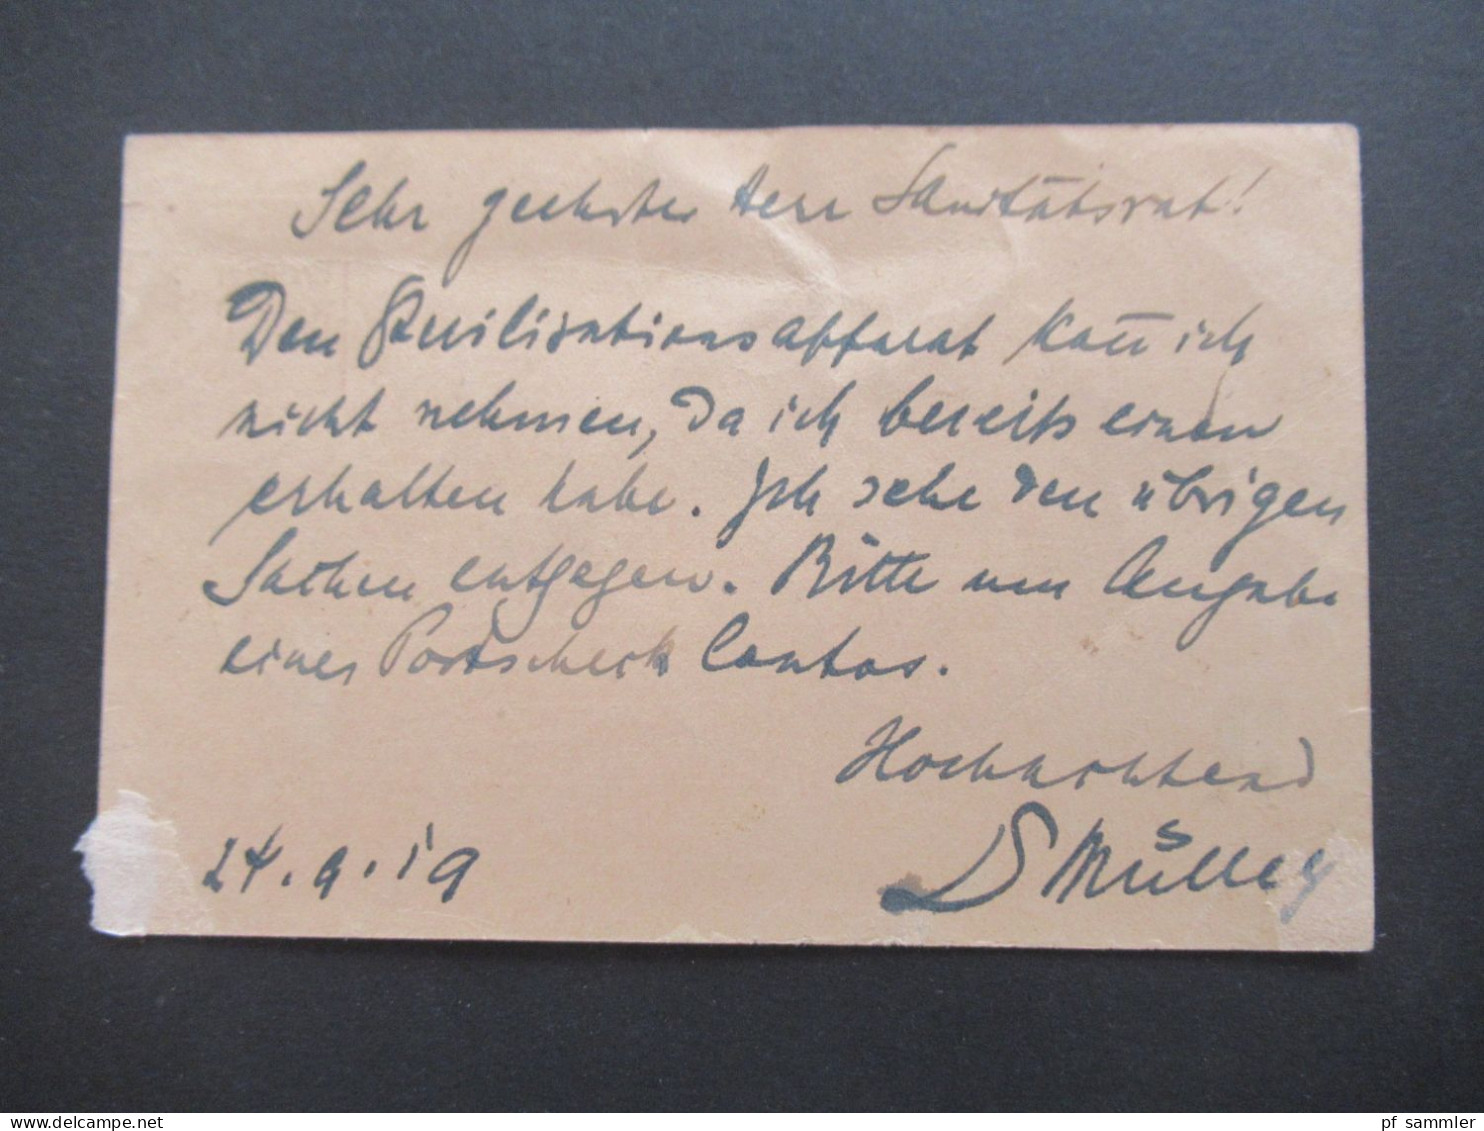 Sehr geehrter Herr Sanitätsrat!
Den Sterilisationsapparat kan̄ ich
nicht nehmen, da ich bereits einen
erhalten habe. Ich sehe den übrigen
Sachen entgegen. Bitte um Angabe
eines Postscheck Contos.
Hochachtend
24.9.19
Dr Müller
delcampe.net
pf_sammler